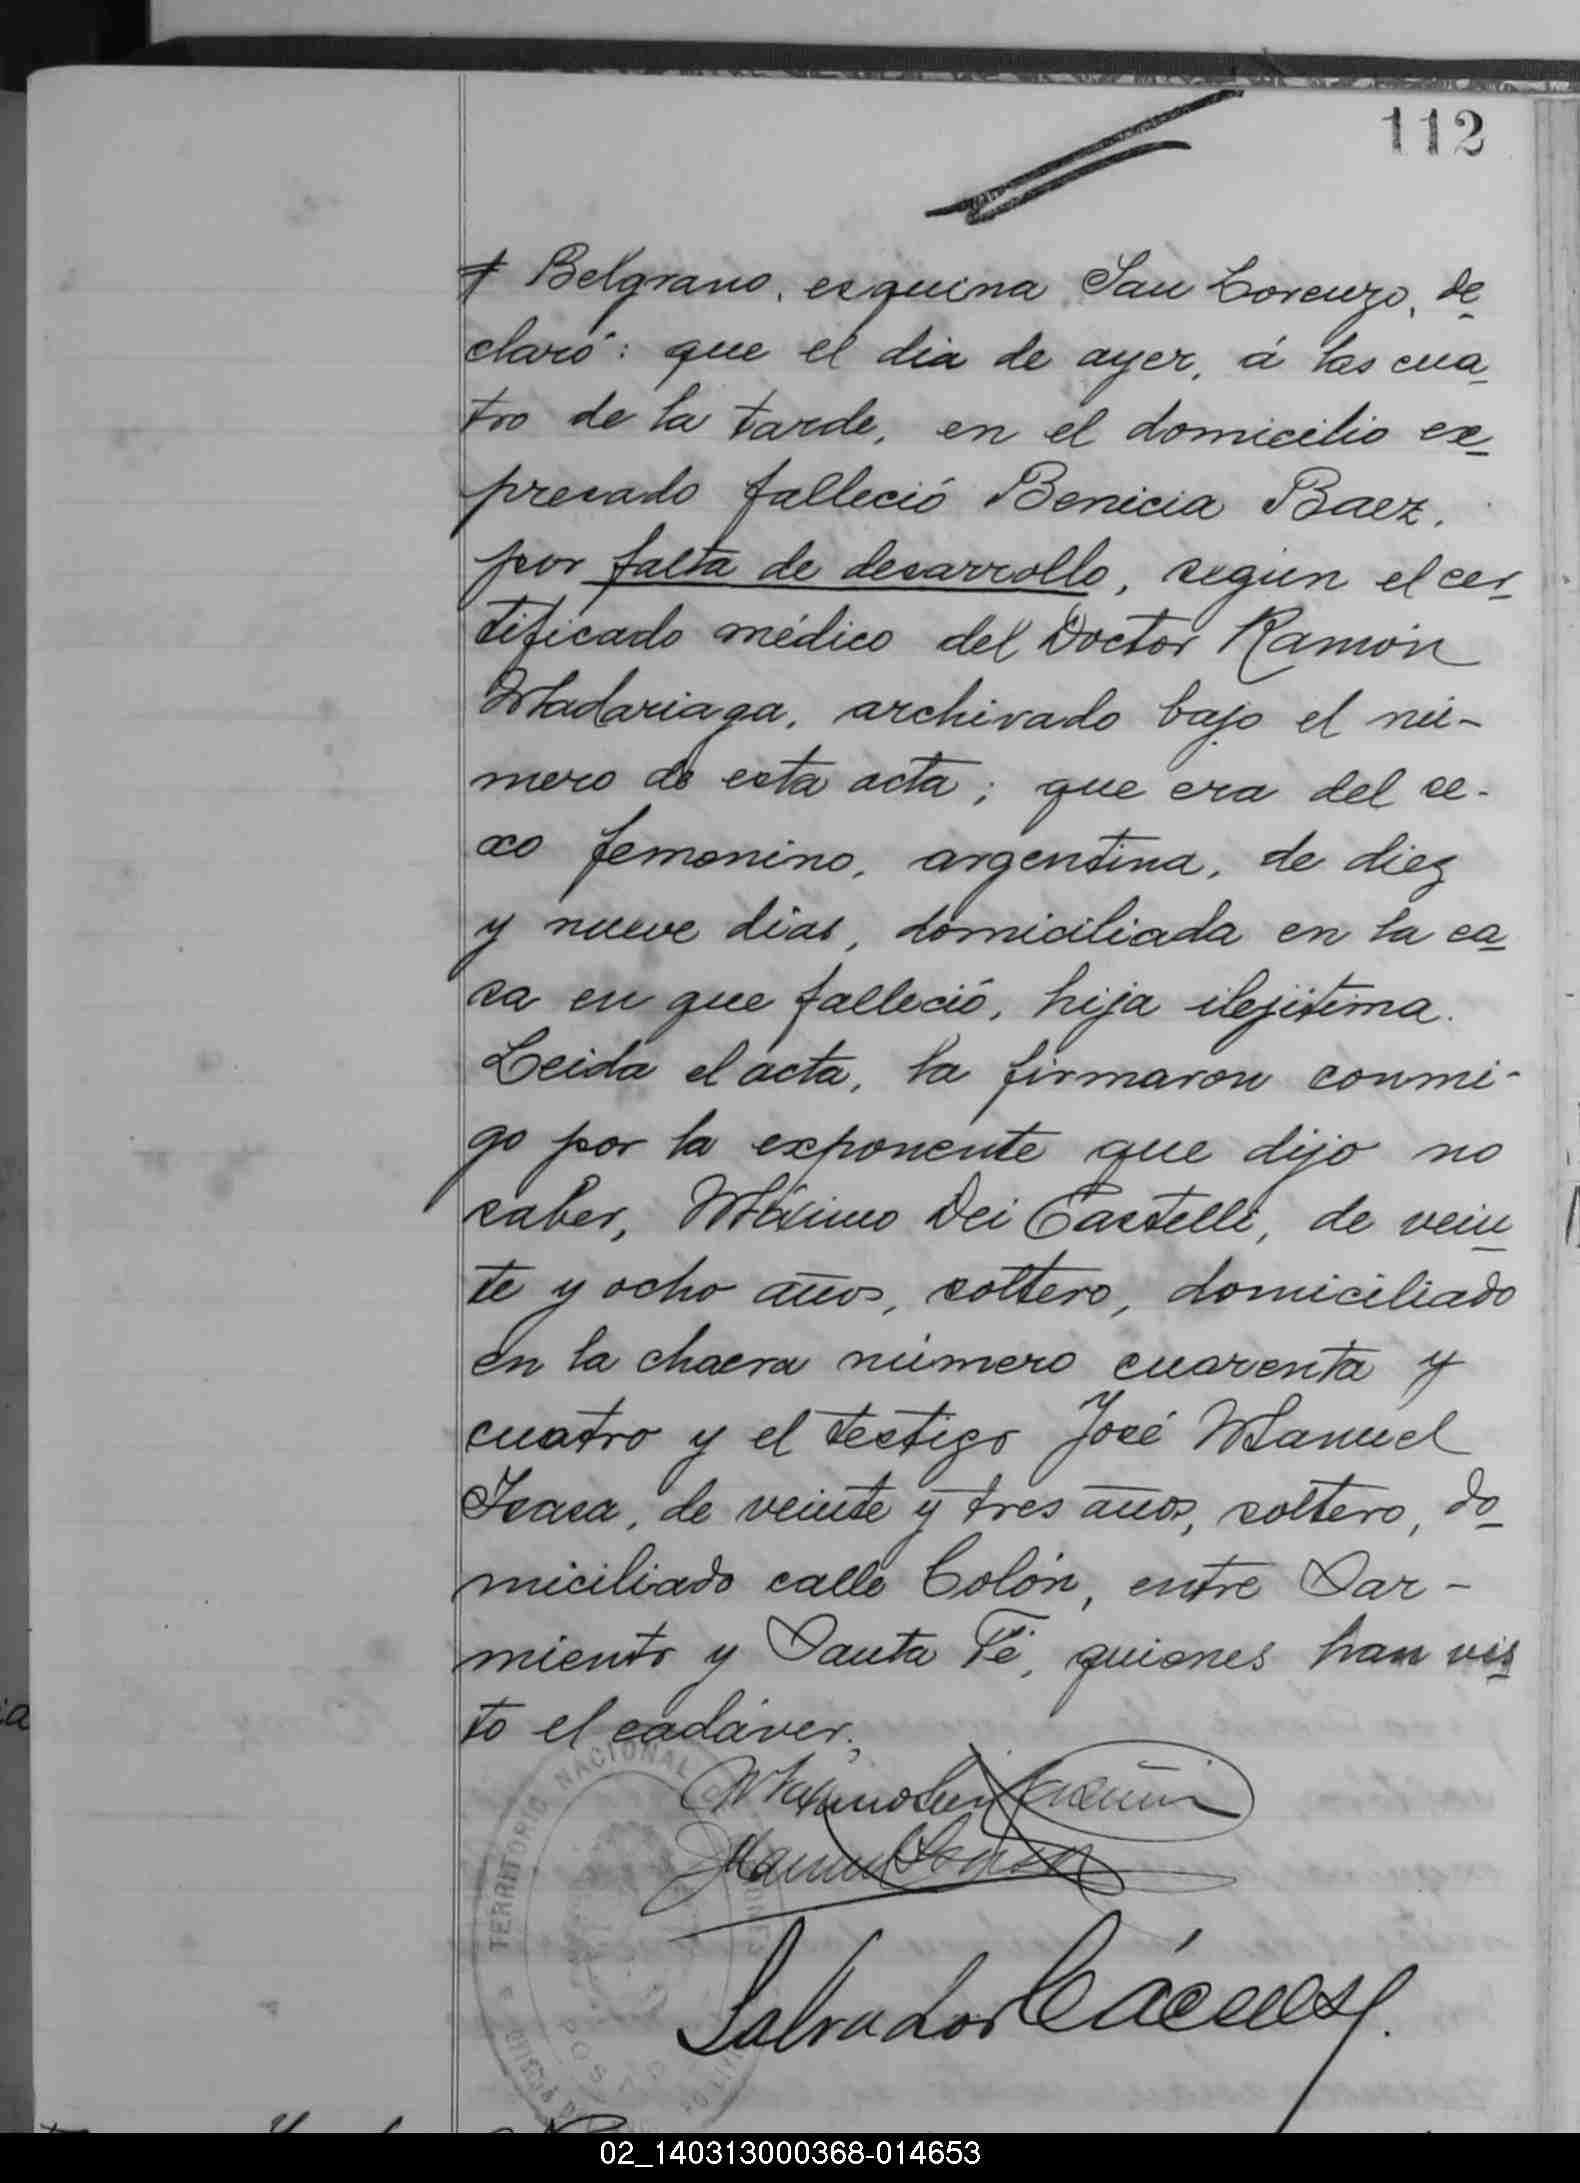 112
y Belgrano, esquina San Lorenzo, de
claró: que el dia de ayer, á las cua
tro de la tarde, en el domicilio ex
presado falleció Benicia Baez,
por falta de desarrollo, según el cer
tificado médico del Doctor Ramón
Madariaga, archivado bajo el nú-
mero de esta acta; que era del se-
xo femenino, argentina, de diez
y nueve dias, domiciliada en la ca
sa en que falleció, hija ilejitima.
Leida el acta, la firmaron conmi-
go por la exponente que dijo no
saber, Máximo Dei Castelli, de vein
te y ocho años, soltero, domiciliado
en la chacra número cuarenta y
cuatro y el testigo José Manuel
Isasa, de veinte y tres años, soltero, do
miciliado calle Colón, entre Sar-
miento y Santa Fé, quienes han vis
to el cadáver.
TERRITORIO NACIONAL
POSADAS
Salvador
02_140313000368-014653